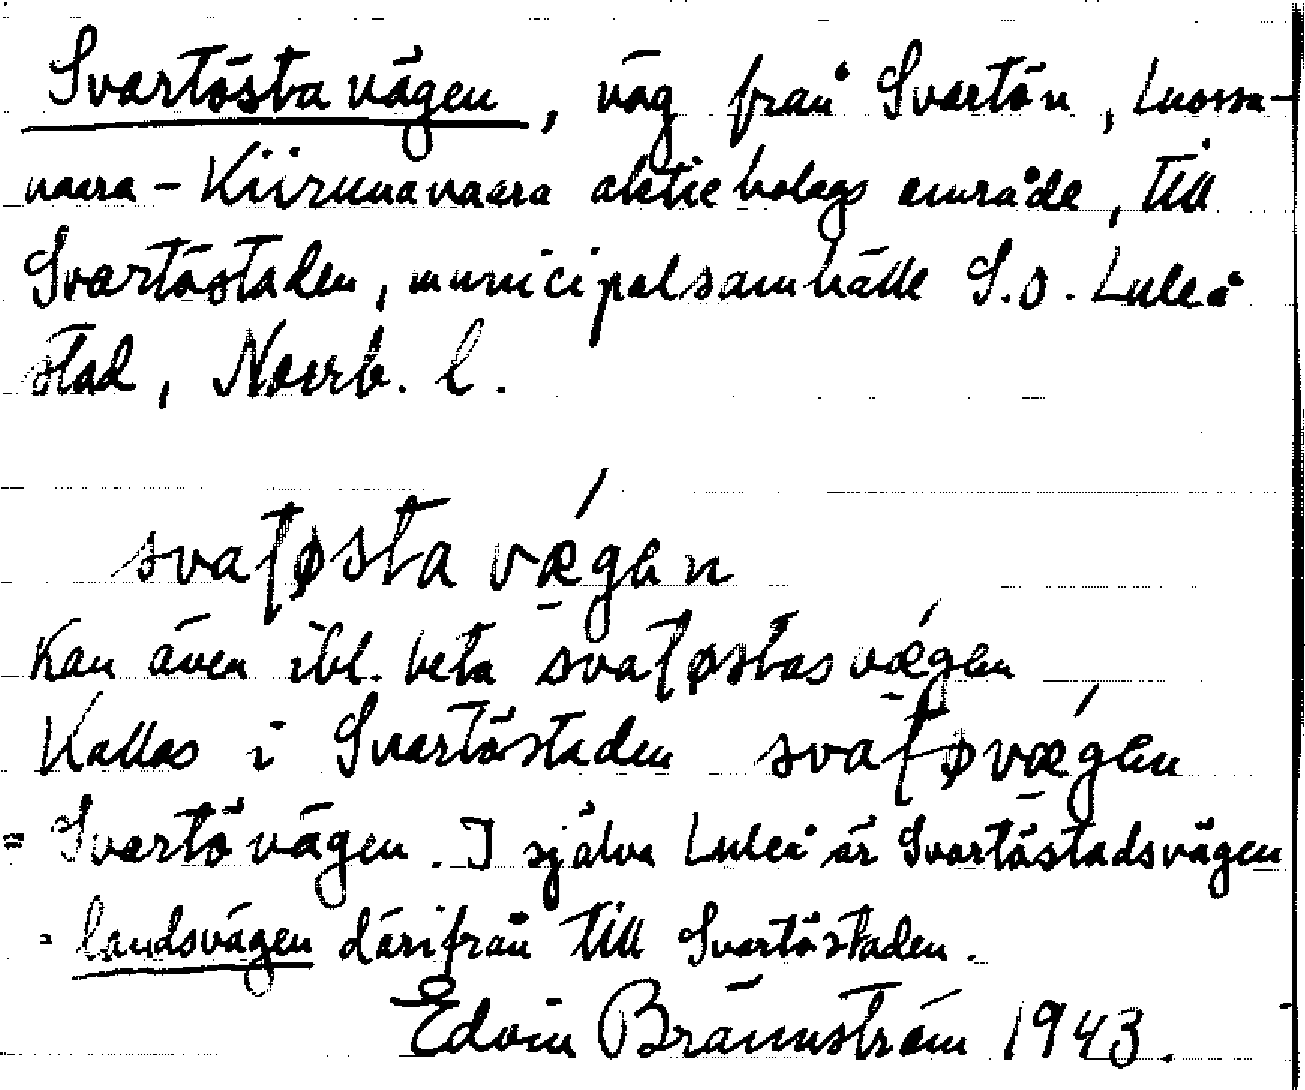 Svartöstavägen, väg från Svartön, Luossa-
vaara - Kiirunavaara aktiebolags område, till
Svartöstaden, municipalsamhälle S.O. Luleå
stad, Norrb. l.
svaʈøsta vǽgen
Kan även ibl. heta svaʈøstasvǽgen
Kallas i Svartöstaden svaʈøvǽgen
= Svartövägen. I själva Luleå är Svartöstadsvägen
= landsvägen därifrån till Svartöstaden.
Edvin Brännström 1943.